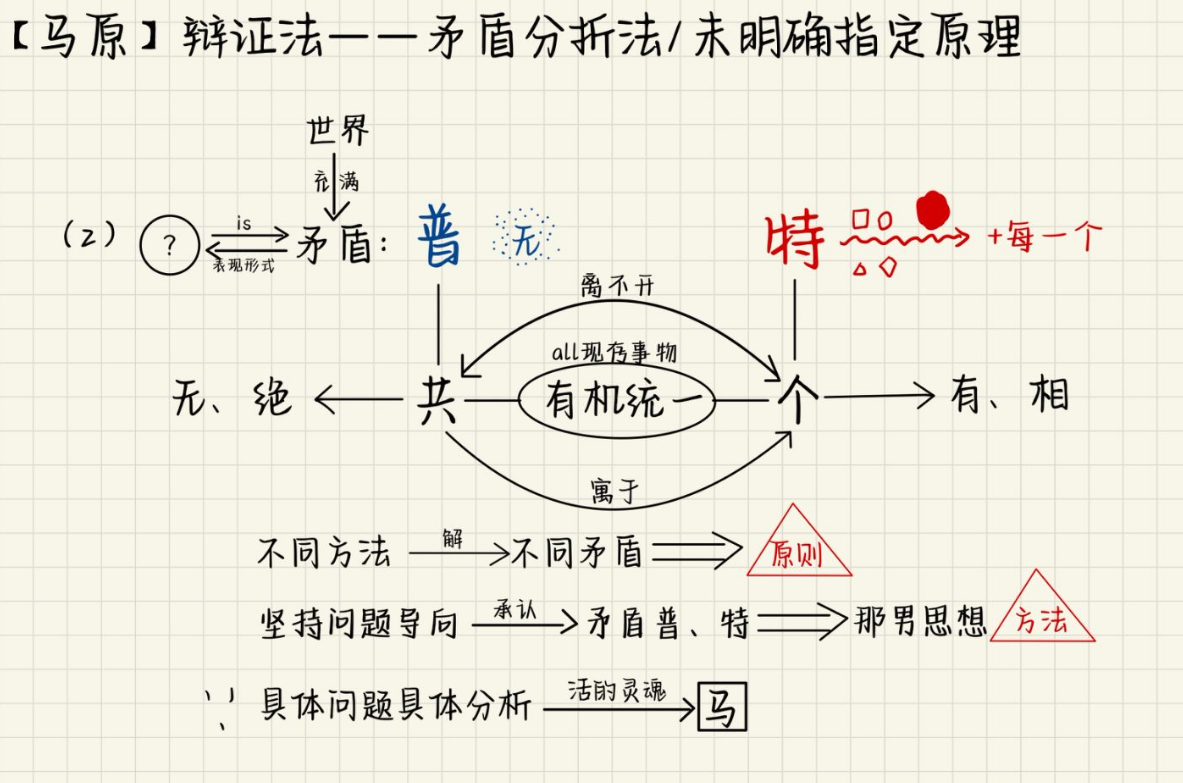 【马原】辩证法——矛盾分折法/未明确指定原理
世界
充满
(2) ? is 表现形式 矛盾: 普 无 特 +每一个
离不开
all现存事物
无、绝 共 有机统一 个 有、相
寓于
不同方法 解 不同矛盾 原则
坚持问题导向 承认 矛盾普、特 那男思想 方法
∵ 具体问题具体分析 活的灵魂 马